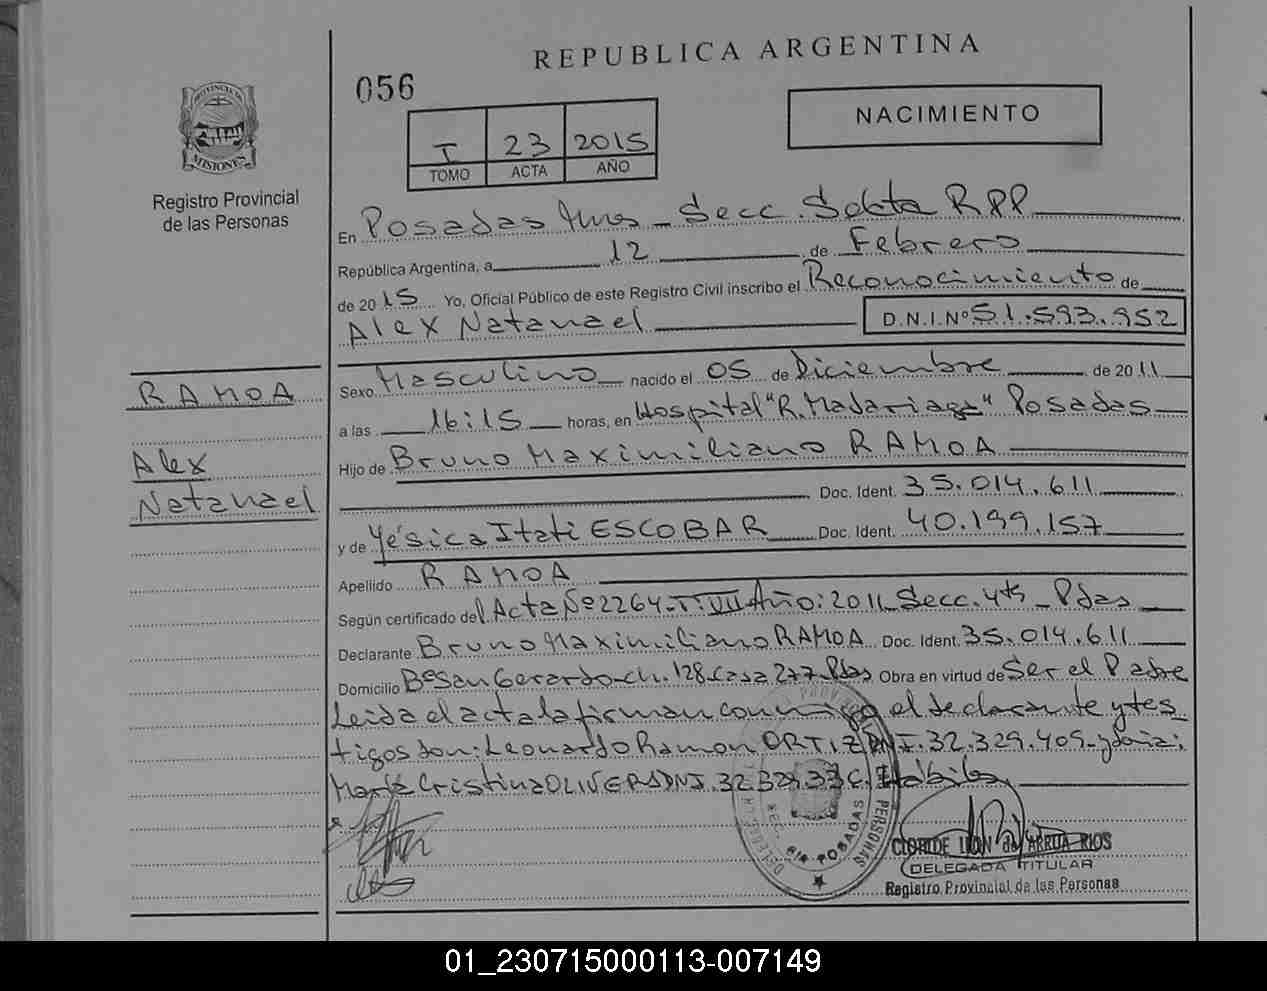 REPUBLICA ARGENTINA
056
NACIMIENTO
I 23 2015
TOMO ACTA AÑO
PROVINCIA DE
MISIONES
Registro Provincial
de las Personas
En Posadas Mnes - Secc. Sexta RPP
República Argentina, a 12 de Febrero
de 2015 Yo, Oficial Público de este Registro Civil inscribo el Reconocimiento de
Alex Natanael D.N.I.Nº 51.593.952
RAMOA
Alex
Natanael
Sexo Masculino nacido el 05 de Diciembre de 2011
a las 16:15 horas, en Hospital "R. Madariaga" Posadas
Hijo de Bruno Maximiliano RAMOA
Doc. Ident. 35.014.611
y de Yésica Itati ESCOBAR Doc. Ident. 40.199.157
Apellido RAMOA
Según certificado del Acta Nº 2264-T:VII Año: 2011 Secc. 4ta - Pdas
Declarante Bruno Maximiliano RAMOA Doc. Ident. 35.014.611
Domicilio Bº San Gerardo-ch. 128 casa 277-Pdas Obra en virtud de Ser el Padre
Leida el acta la firman conmigo el declarante y tes
tigos don: Leonardo Ramon ORTIZ DNI. 32.329.409-y doña:
María Cristina DNI.
SEC. 6TA POSADAS
PERSONAS
CLORIDE ARRUA RIOS
DELEGADA TITULAR
Registro Provincial de las Personas
01_230715000113-007149